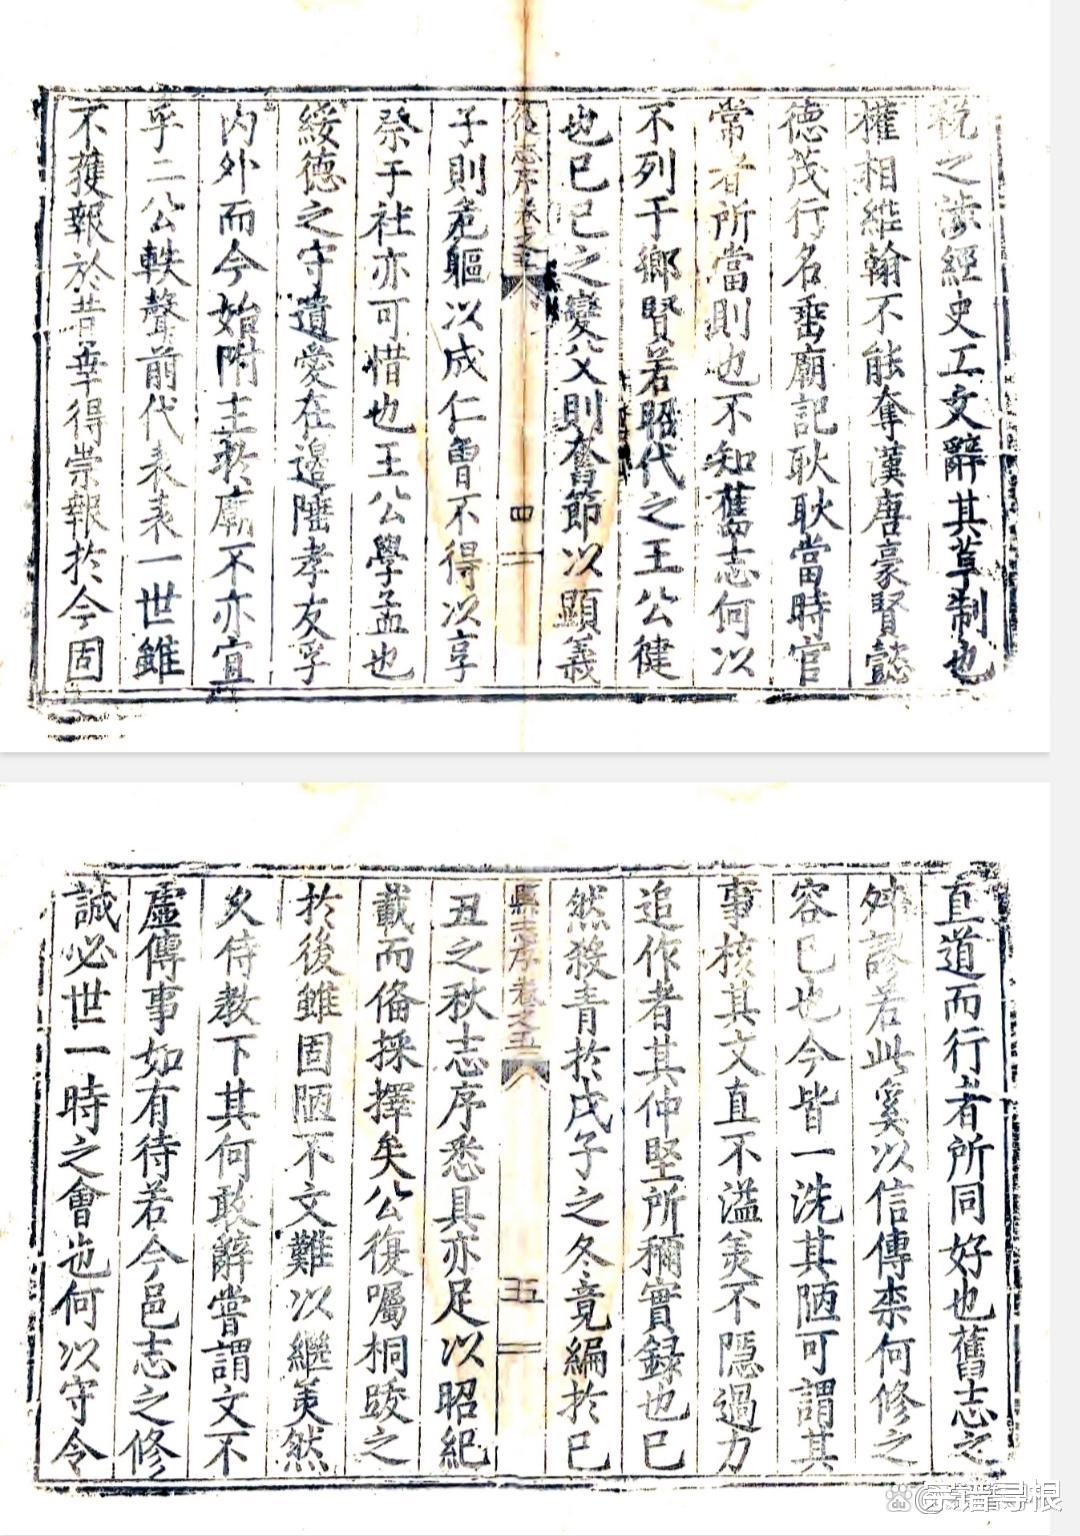 稅之淡經史工文辭其草制也
權相維翰不能奪漢唐豪賢懿
德茂行名垂廟記耿耿當時官
常者所當則也不知舊志何以
不列于鄉賢若昭代之王公健
也已巳之變父則奮節以顯義
志序卷之五
四
子則危軀以成仁曾不得以享
祭于社亦可惜也王公學孟也
綏德之守遺愛在邊陲孝友孚
內外而今始附主於廟不亦宜
乎二公軼聲前代表表一世雖
不獲報於昔幸得崇報於今固
直道而行者所同好也舊志之
舛謬若此奚以信傳柰何修之
容已也今皆一洗其陋可謂其
事核其文直不溢羙不隱過力
追作者其仲堅所稱實録也已
然殺青於戊子之冬竟編於己
縣志序卷之五
五
丑之秋志序悉具亦足以昭紀
載而俻採擇矣公復囑桐跋之
於後雖固陋不文難以繼羙然
久侍教下其何敢辭嘗謂文不
虛傳事如有待若今邑志之修
誠必世一時之會也何以守令
du 尋根